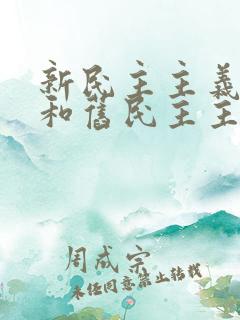 新民主主義
和舊民主主
周成宗
未经同意禁止转载